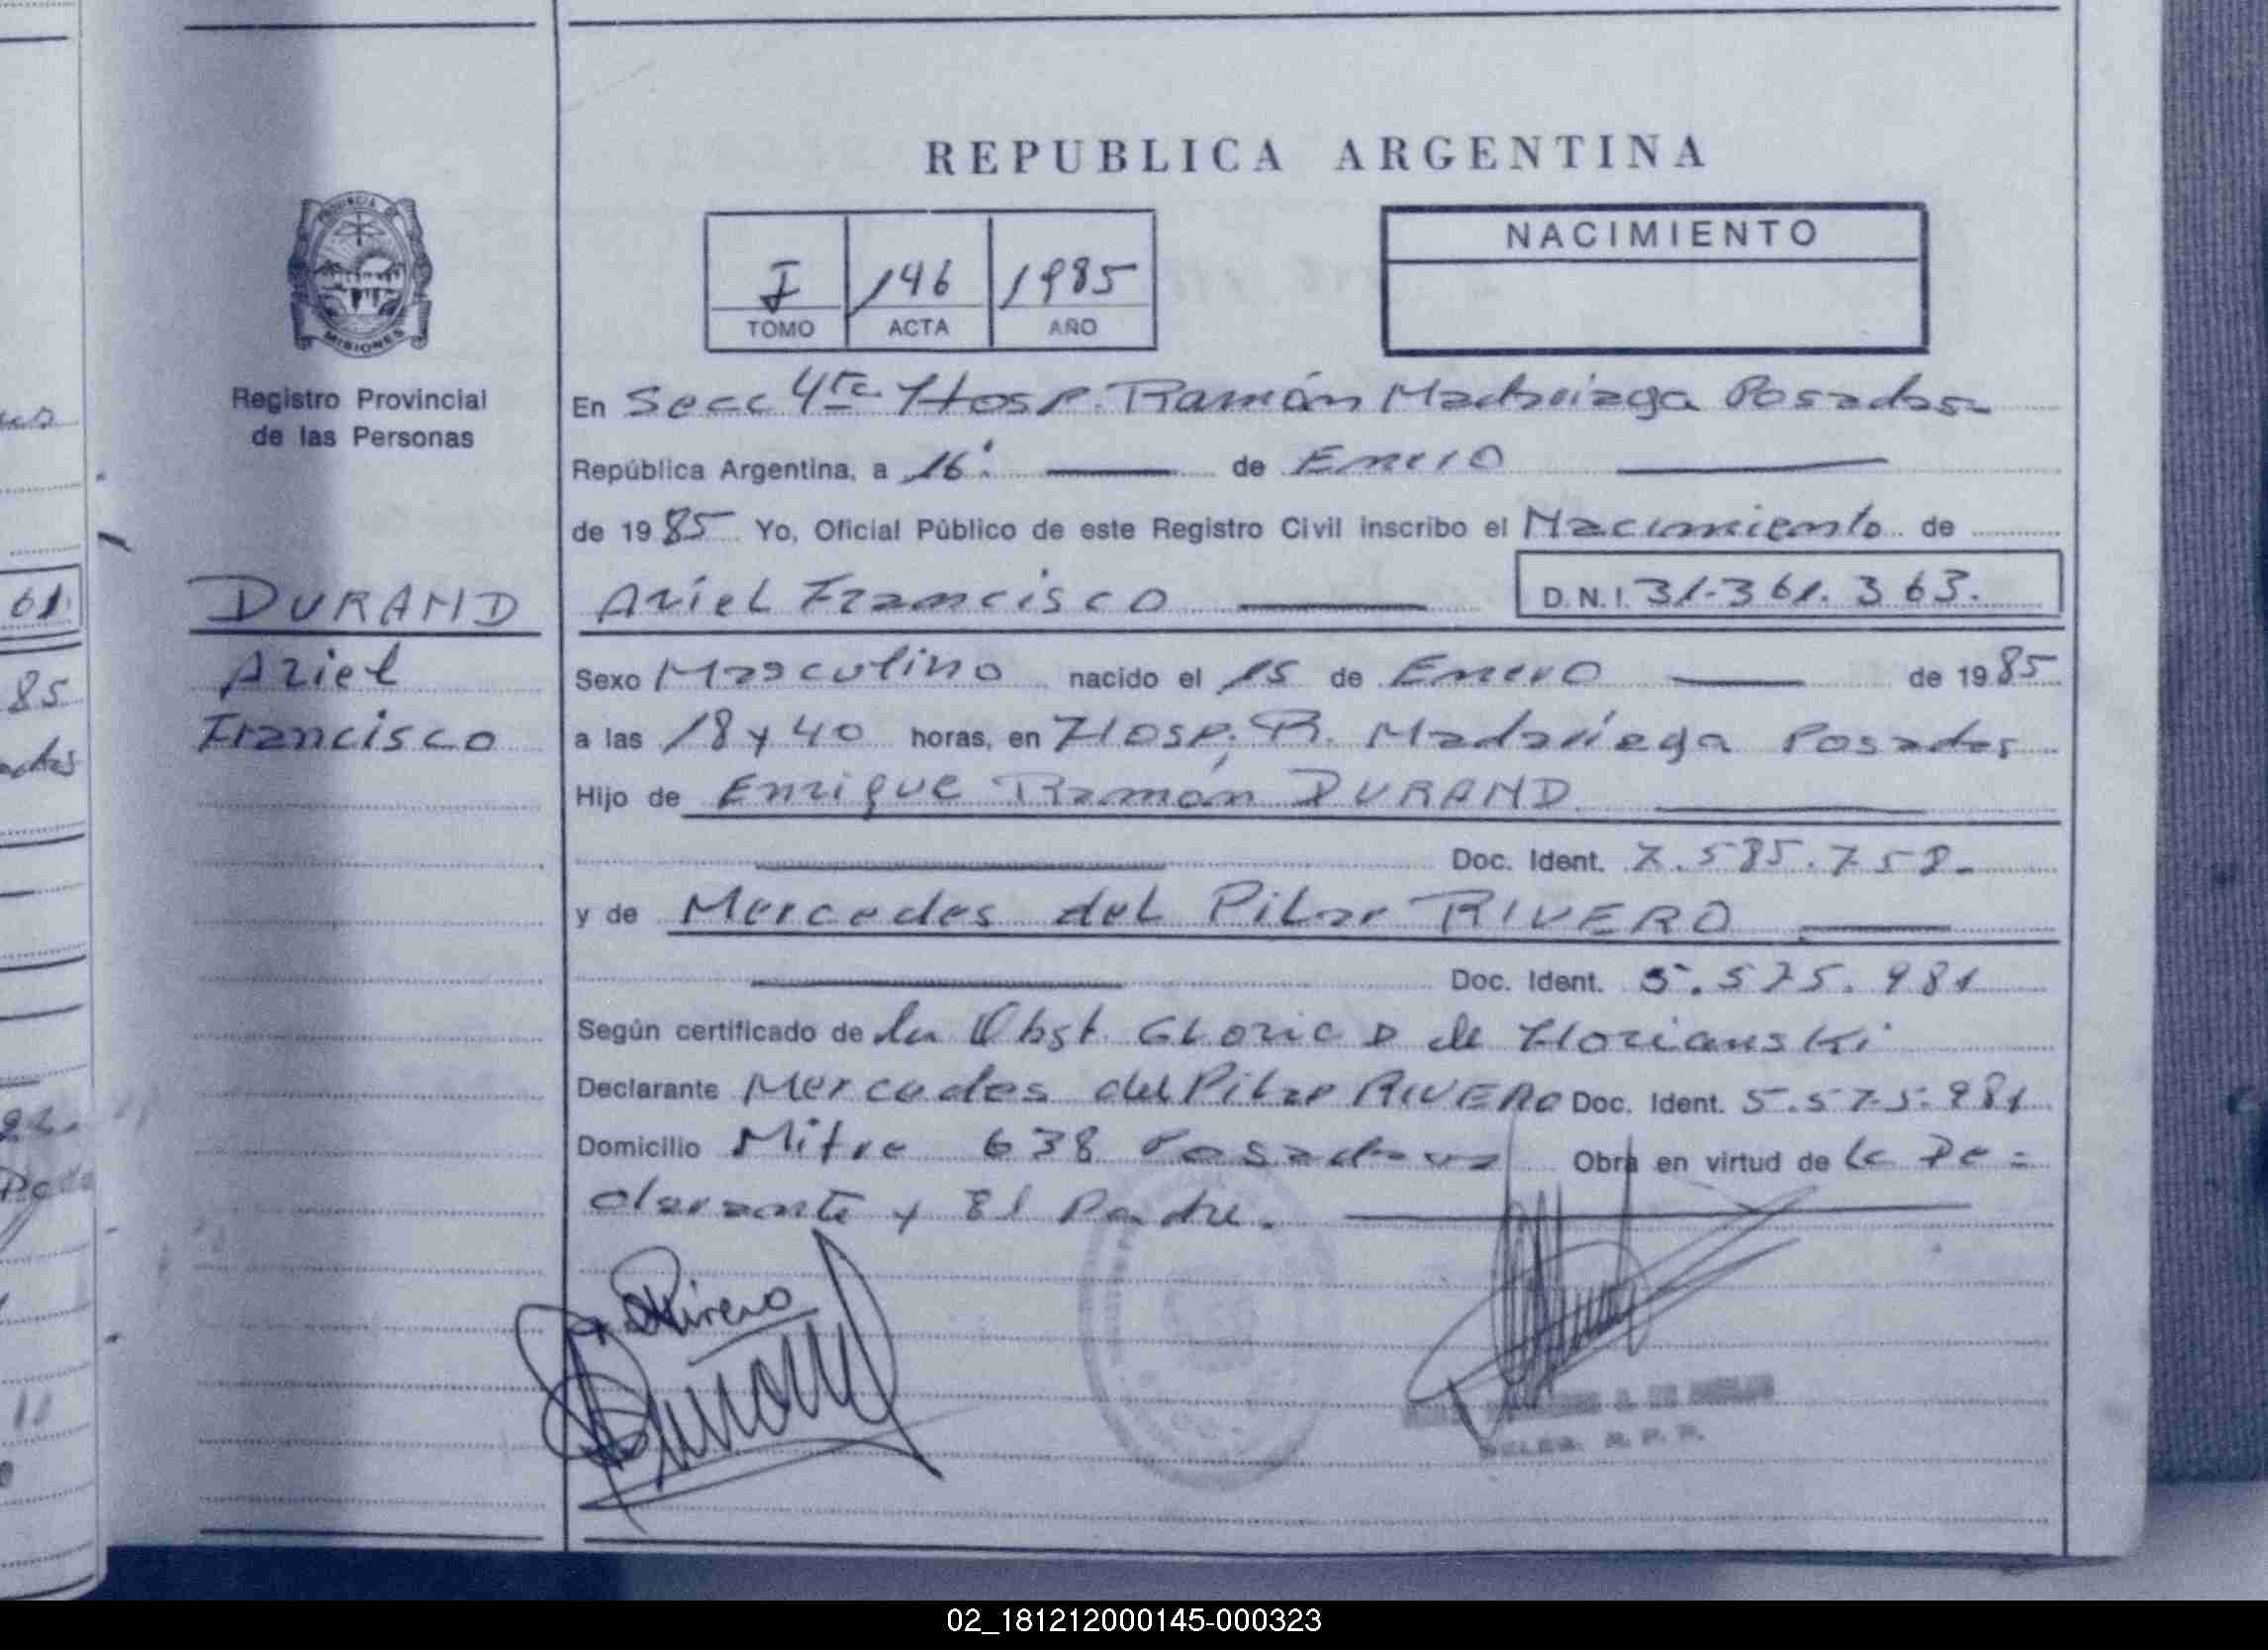 REPUBLICA ARGENTINA
PROVINCIA DE
MISIONES
I 146 1985
TOMO ACTA AÑO
NACIMIENTO
Registro Provincial
de las Personas
En Secc 4ta Hosp. Ramón Madariaga Posadas
República Argentina, a 16. de Enero
de 1985 Yo, Oficial Público de este Registro Civil inscribo el Nacimiento de
DURAND Ariel Francisco D.N.I. 31.361.363.
Ariel
Francisco
Sexo Masculino nacido el 15 de Enero de 1985
a las 18 y 40 horas, en Hosp. R. Madariaga Posadas
Hijo de Enrique Ramón DURAND
Doc. Ident. 7.585.758.
y de Mercedes del Pilar RIVERO
Doc. Ident. 5.575.981
Según certificado de la Obst. Gloria D de
Declarante Mercedes del Pilar RIVERO Doc. Ident. 5.575.981
Domicilio Mitre 638 Posadas Obra en virtud de la De=
clarante y El Padre.
Rivero
Durand
R. P. P.
61.
85
02_181212000145-000323